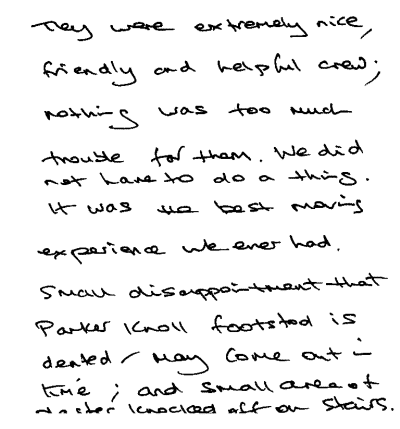 They were extremely nice,
friendly and helpful crew;
nothing was too much
trouble for them. We did
not have to do a thing.
It was the best moving
experience we ever had.
Small disappointment that
Parker Knoll footstool is
dented / may come out in
time; and small area of
plaster knocked off on stairs.